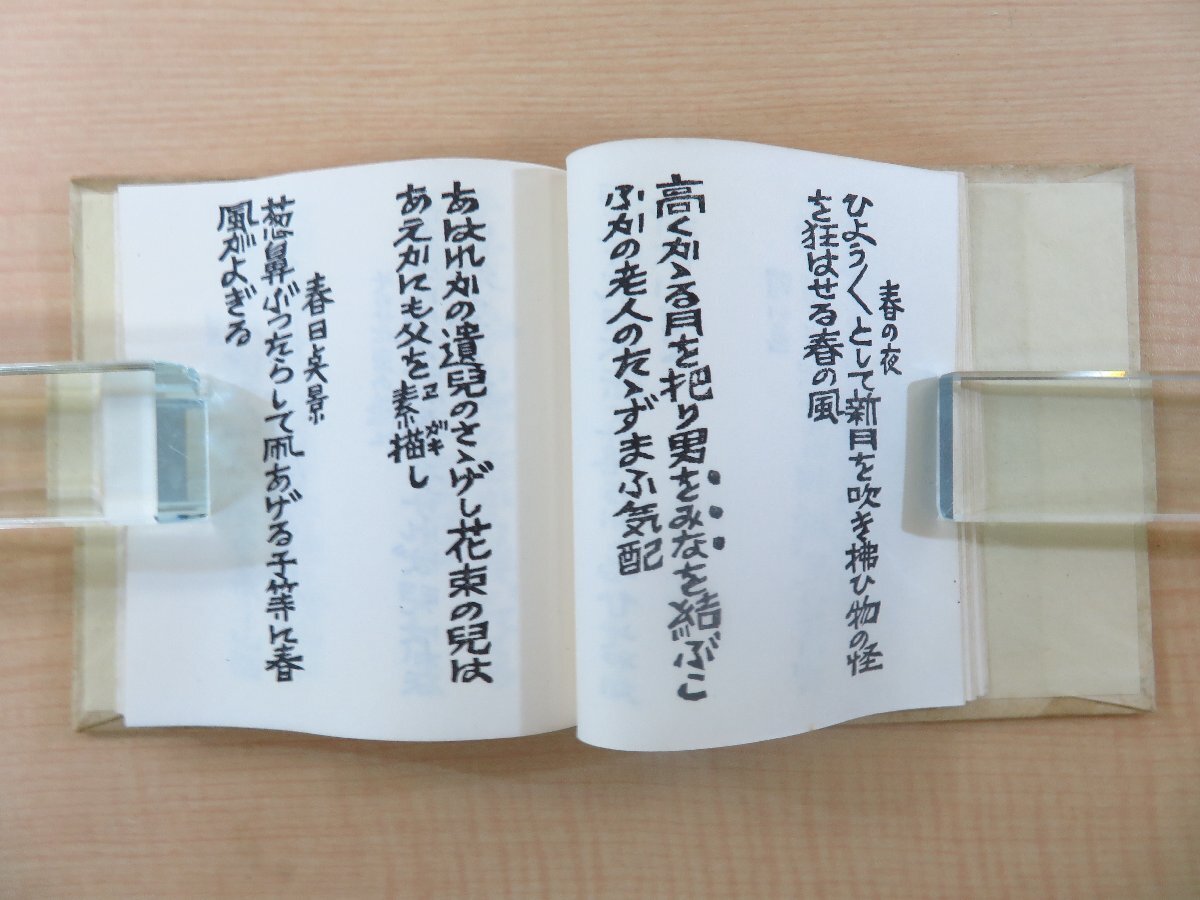 春の夜
ひよう〱として新月を吹き拂ひ物の怪
を狂はせる春の風
高くかゝる月を把り男をみなを結ぶこ
ぶかの老人のたゝずまふ気配
あはれかの遺兒のさゝげし花束の兒は
あえかにも父を素描し
ヱガキ
春日点景
葱鼻ぶったらして凧あげる子等に春
風がよぎる